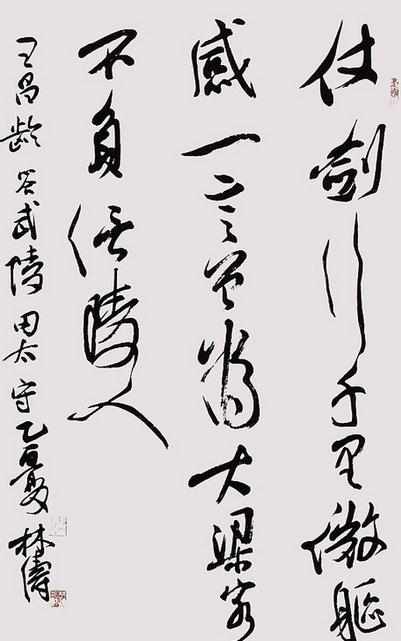 仗劍行千里微躯
感一言曾為大梁客
不負信陵人
王昌龄答武陵田太守乙酉夏林濤